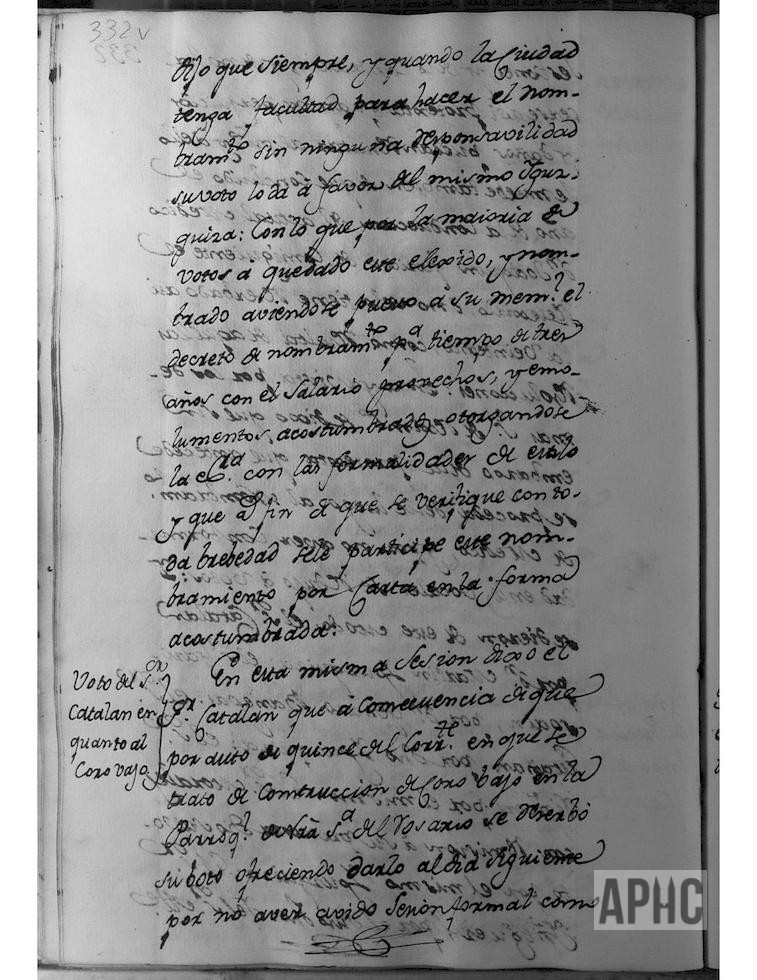 332v
dijo que siempre, y quando la Ciudad
tenga facultad para hacer el nom-
bramto sin ninguna responsavilidad
su voto lo da â favor del mismo Ygur-
quiza: Con lo que por la maioria de
votos a quedado este elexido, y nom-
brado aviendose puesto â su meml. el
decreto de nombramto pa tiempo de tres
años con el salario provechos, y emo-
lumentos acostumbrados otorgandose
la Esra. con las formalidades de estilo
y que â fin de que se verifique con to-
da brebedad se le participe este nom-
bramiento por Carta en la forma
acostumbrada.
Voto del Sor.
Catalan en
quanto al
Coro vajo.
En esta misma Sesion dixo el
Sr. Catalan que â consecuencia de que
por auto de quince del Corrte. en que se
trato de Construccion de Coro bajo en la
Parroql. de Nra Sa del Rosario se reserbò
su boto ofreciendo darlo al dia siguiente
por no aver avido Sesion formal como
APHC